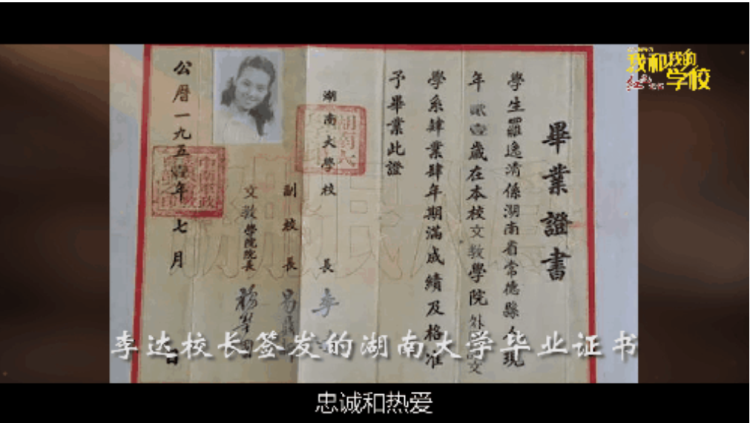 我和我的
学校
畢業證書
學生羅逸清係湖南省常德縣人現
年貳壹歲在本校文教學院外國語文
學系肄業肆年期滿成績及格准
予畢業此證
湖南大學校長 李
副校長 易
文教學院院長
公曆一九五 年七月 日
李达校长签发的湖南大学毕业证书
忠诚和热爱